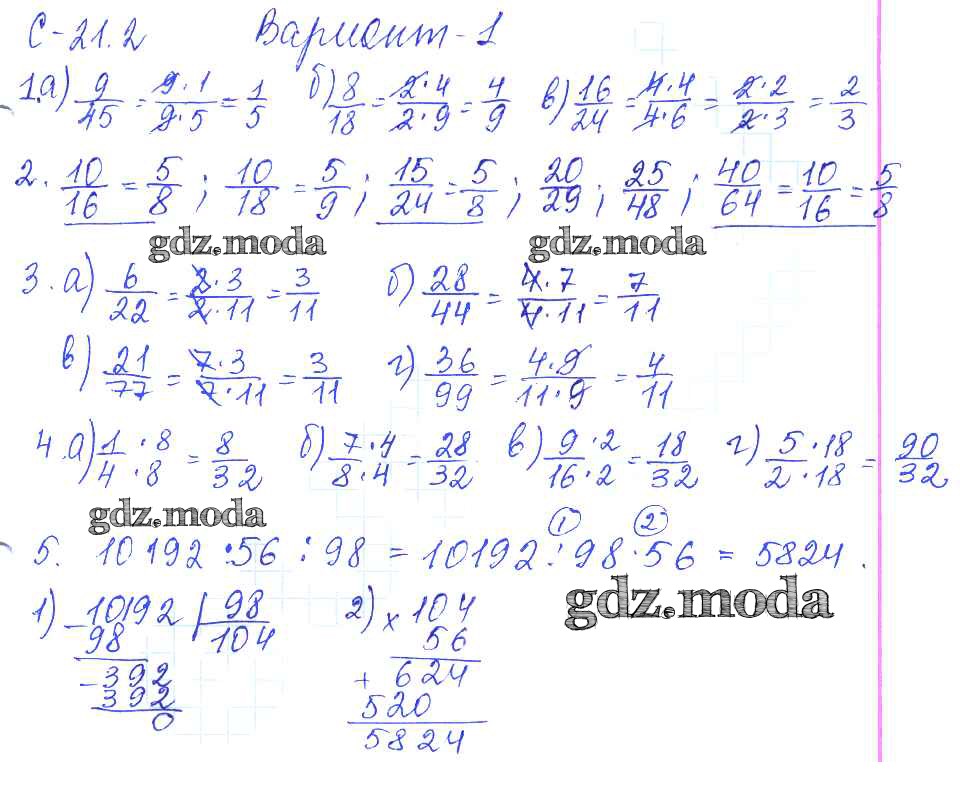 С-21.2 Вариант-1
1.а) 9/45 = 9·1/9·5 = 1/5 б) 8/18 = 2·4/2·9 = 4/9 в) 16/24 = 4·4/4·6 = 2·2/2·3 = 2/3
2. 10/16 = 5/8 ; 10/18 = 5/9 ; 15/24 = 5/8 ; 20/29 ; 25/48 ; 40/64 = 10/16 = 5/8
gdz.moda gdz.moda
3. а) 6/22 = 2·3/2·11 = 3/11 б) 28/44 = 4·7/4·11 = 7/11
в) 21/77 = 7·3/7·11 = 3/11 г) 36/99 = 4·9/11·9 = 4/11
4.а) 1·8/4·8 = 8/32 б) 7·4/8·4 = 28/32 в) 9·2/16·2 = 18/32 г) 5·18/2·18 = 90/32
gdz.moda
① ②
5. 10192 · 56 : 98 = 10192 : 98 · 56 = 5824.
gdz.moda
1) − 10192 | 98
98 104
− 392
392
0
2) × 104
56
+ 624
520
5824